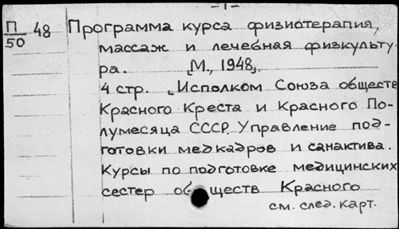 -1-
П/50 48 Программа курса физиотерапия,
массаж и лечебная физкульту
ра. [М., 1948].
4 стр. [Исполком Союза обществ
Красного Креста и Красного По-
лумесяца СССР. Управление под-
готовки медкадров и санактива.
Курсы по подготовке медицинских
сестер обществ Красного
см. след. карт.